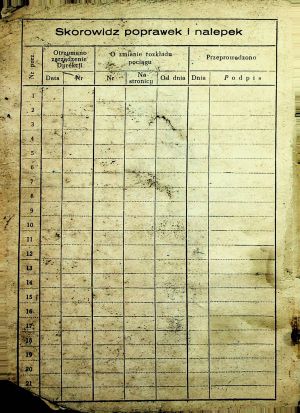 Skorowidz poprawek i nalepek
Nr porz.
Otrzymano zarządzenie Dyrekcji
O zmianie rozkładu pociągu
Przeprowadzono
Data Nr Nr Na stronicy Od dnia Dnia Podpis
1
2
3
4
5
6
7
8
9
10
11
12
13
14
15
16
17
18
19
20
21